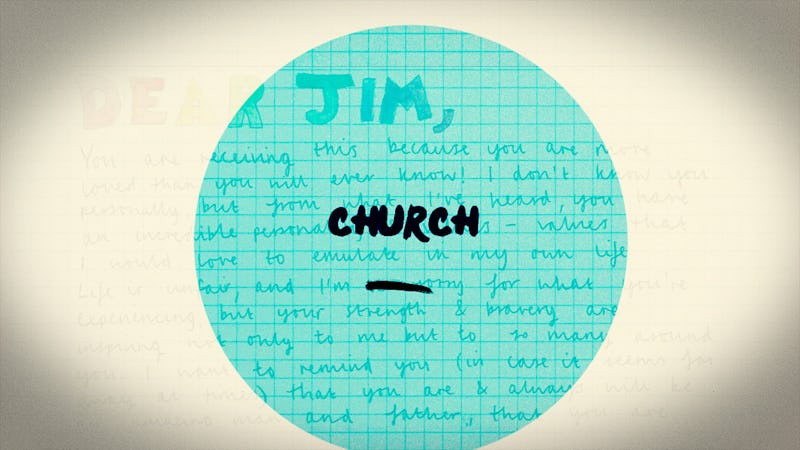 DEAR JIM,
You are receiving this because you are more
loved than you will ever know! I don't know you
personally, but from what I've heard, you have
CHURCH
an incredible personality - values that
I would love to emulate in my own life
Life is unfair, and I'm sorry for what you're
experiencing, but your strength & bravery are
inspiring not only to me but to so many around
you. I want to remind you (in case it seems far
at times) that you are & always will be
man and father, that you are